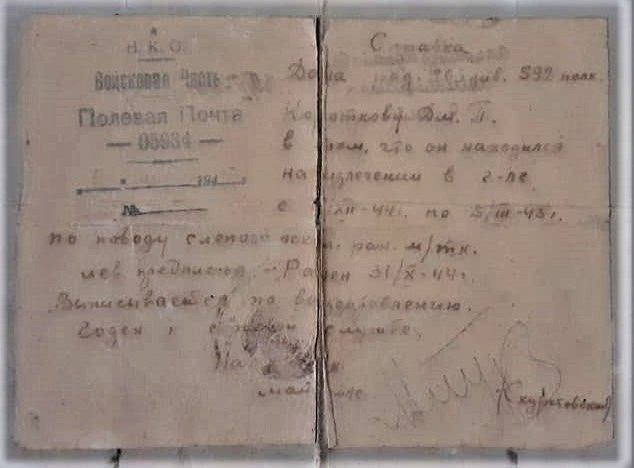 Н. К. О.
Войсковая Часть
Полевая Почта
— 05934 —
194
№
Справка
Дана 592 полк.
Короткову Дм. П.
в том, что он находился
на излечении в г-ле
с XII-44г. по 5/III-45г.
по поводу слепого оскол. ран. м/тк.
лев. предплечья. – Ранен 31/X-44г.
Выписывается по выздоровлению.
Годен к службе.